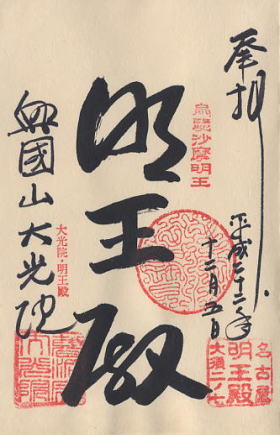 奉拝
平成二十二年
十二月五日
烏蒭沙摩明王
明王殿
大光院・明王殿
興國山大光院
名古屋
明王殿
大須二ノ七